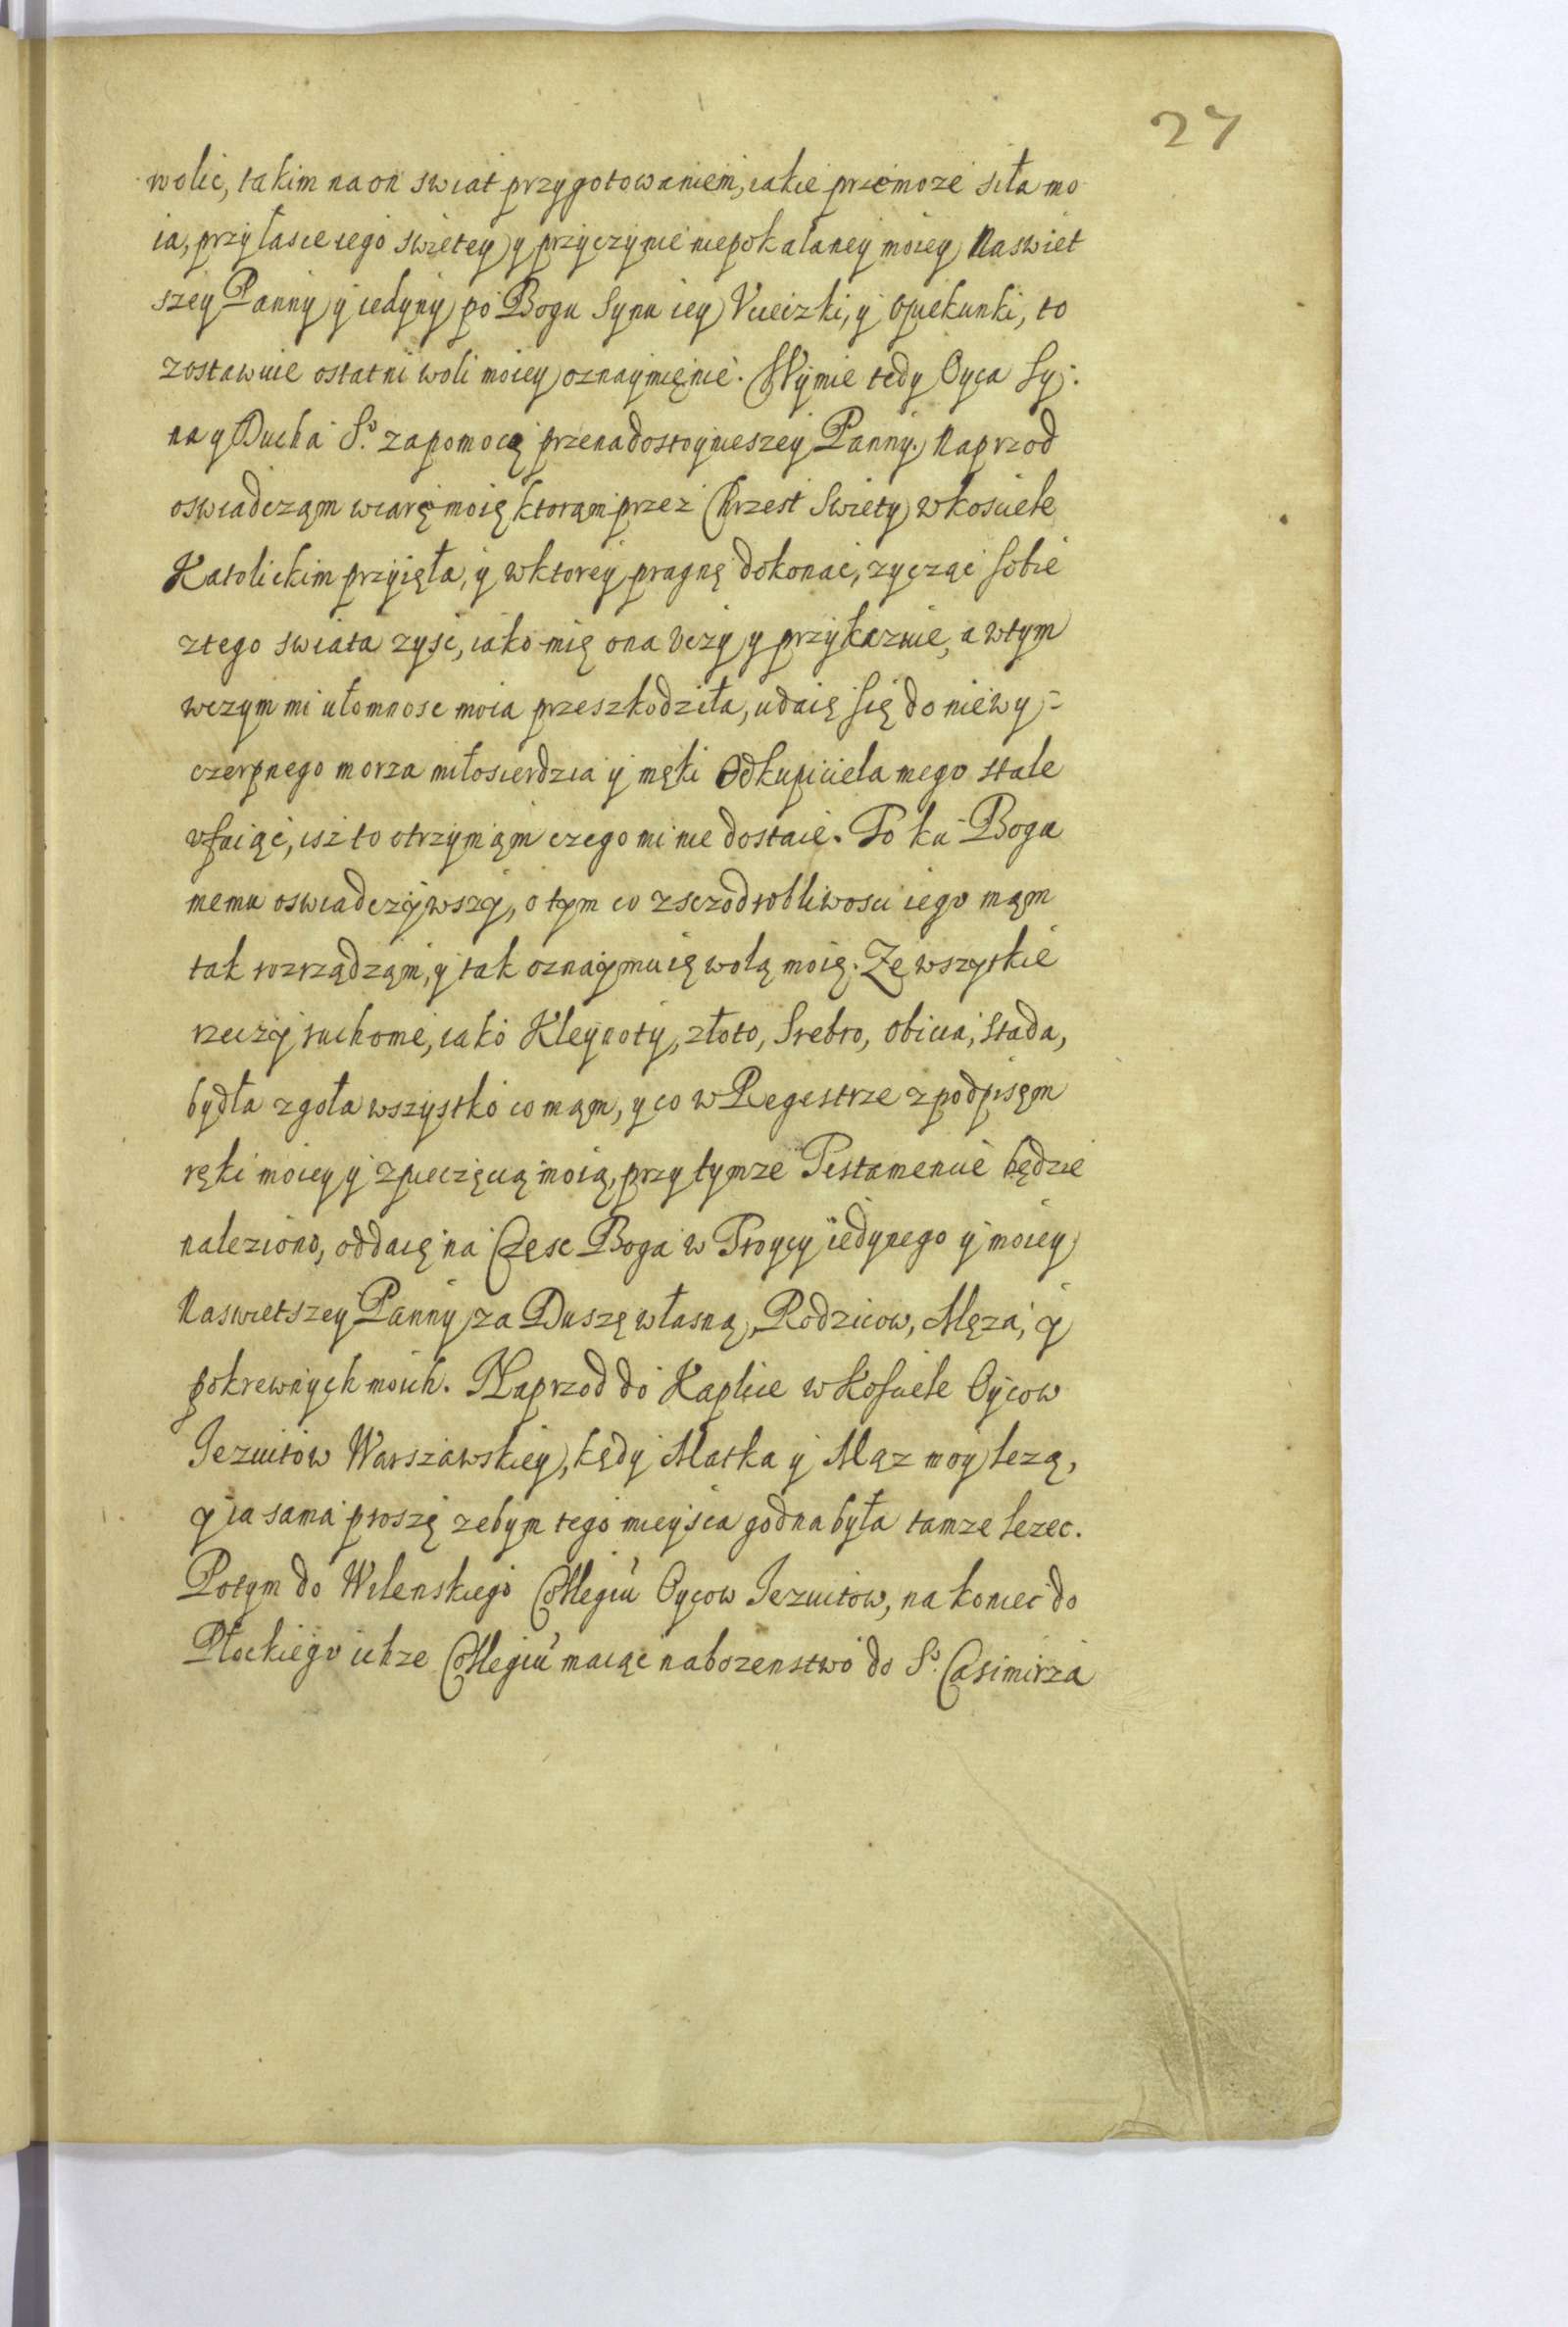 27
wolic, takim na on swiat przygotowaniem, iakie przemoze siła mo
ia, przy łasce iego swietey y przyczynie niepokalaney moiey Naswiet
szey Panny y iedyny po Bogu Synu iey Vcieczki, y Opiekunki, to
zostawuie ostatni woli moiey oznaymięnie. Wymie tedy Oyca Sy:
na y Ducha S.º zapomocą przenadostoynieszey Panny. Naprzod
oswiadczam wiarę moię ktoram przez Chrzest Swiety w kosciele
Katolickim przyięła, y w ktorey pragnę dokonac, zycząc sobie
z tego swiata zysc, iako mię ona Vczy y przykazuie, a wtym
wczym mi ułomnosc moia przeszkodziła, udaię się do niewy=
czerpnego morza miłosierdzia y męki Odkupiciela mego stale
vfaiąc, isz to otrzymąm czego mi nie dostaie. To ku Bogu
memu oswiadczywszy, o tym co zsczodrobliwosci iego mąm
tak rozrządząm, y tak oznaymuię wolą moię. Ze wszytkie
rzeczy ruchome, iako Kleynoty, złoto, Srebro, Obicia, stada,
bydła zgoła wszystko co mąm, y co w Regestrze z podpisęm
ręki moiey y z pieczęcią moią, przy tymze Testamencie będzie
naleziono, oddaię na Częsc Boga w Troycy iedynego y moiey
Naswietszey Panny za Duszę własną, Rodzicow, Męza, y
pokrewnych moich. Naprzod do Kaplice w Kosciele Oycow
Iezuitow Warszawskiey, kędy Matka y Mąz moy lezą,
y ia sama proszę zebym tego mieysca godna była tamze lezec.
Potym do Wilenskiego Collegiu Oycow Iezuitow, na koniec do
Płockiego ichze Collegiu maiąc nabozenstwo do S.º Casimirza